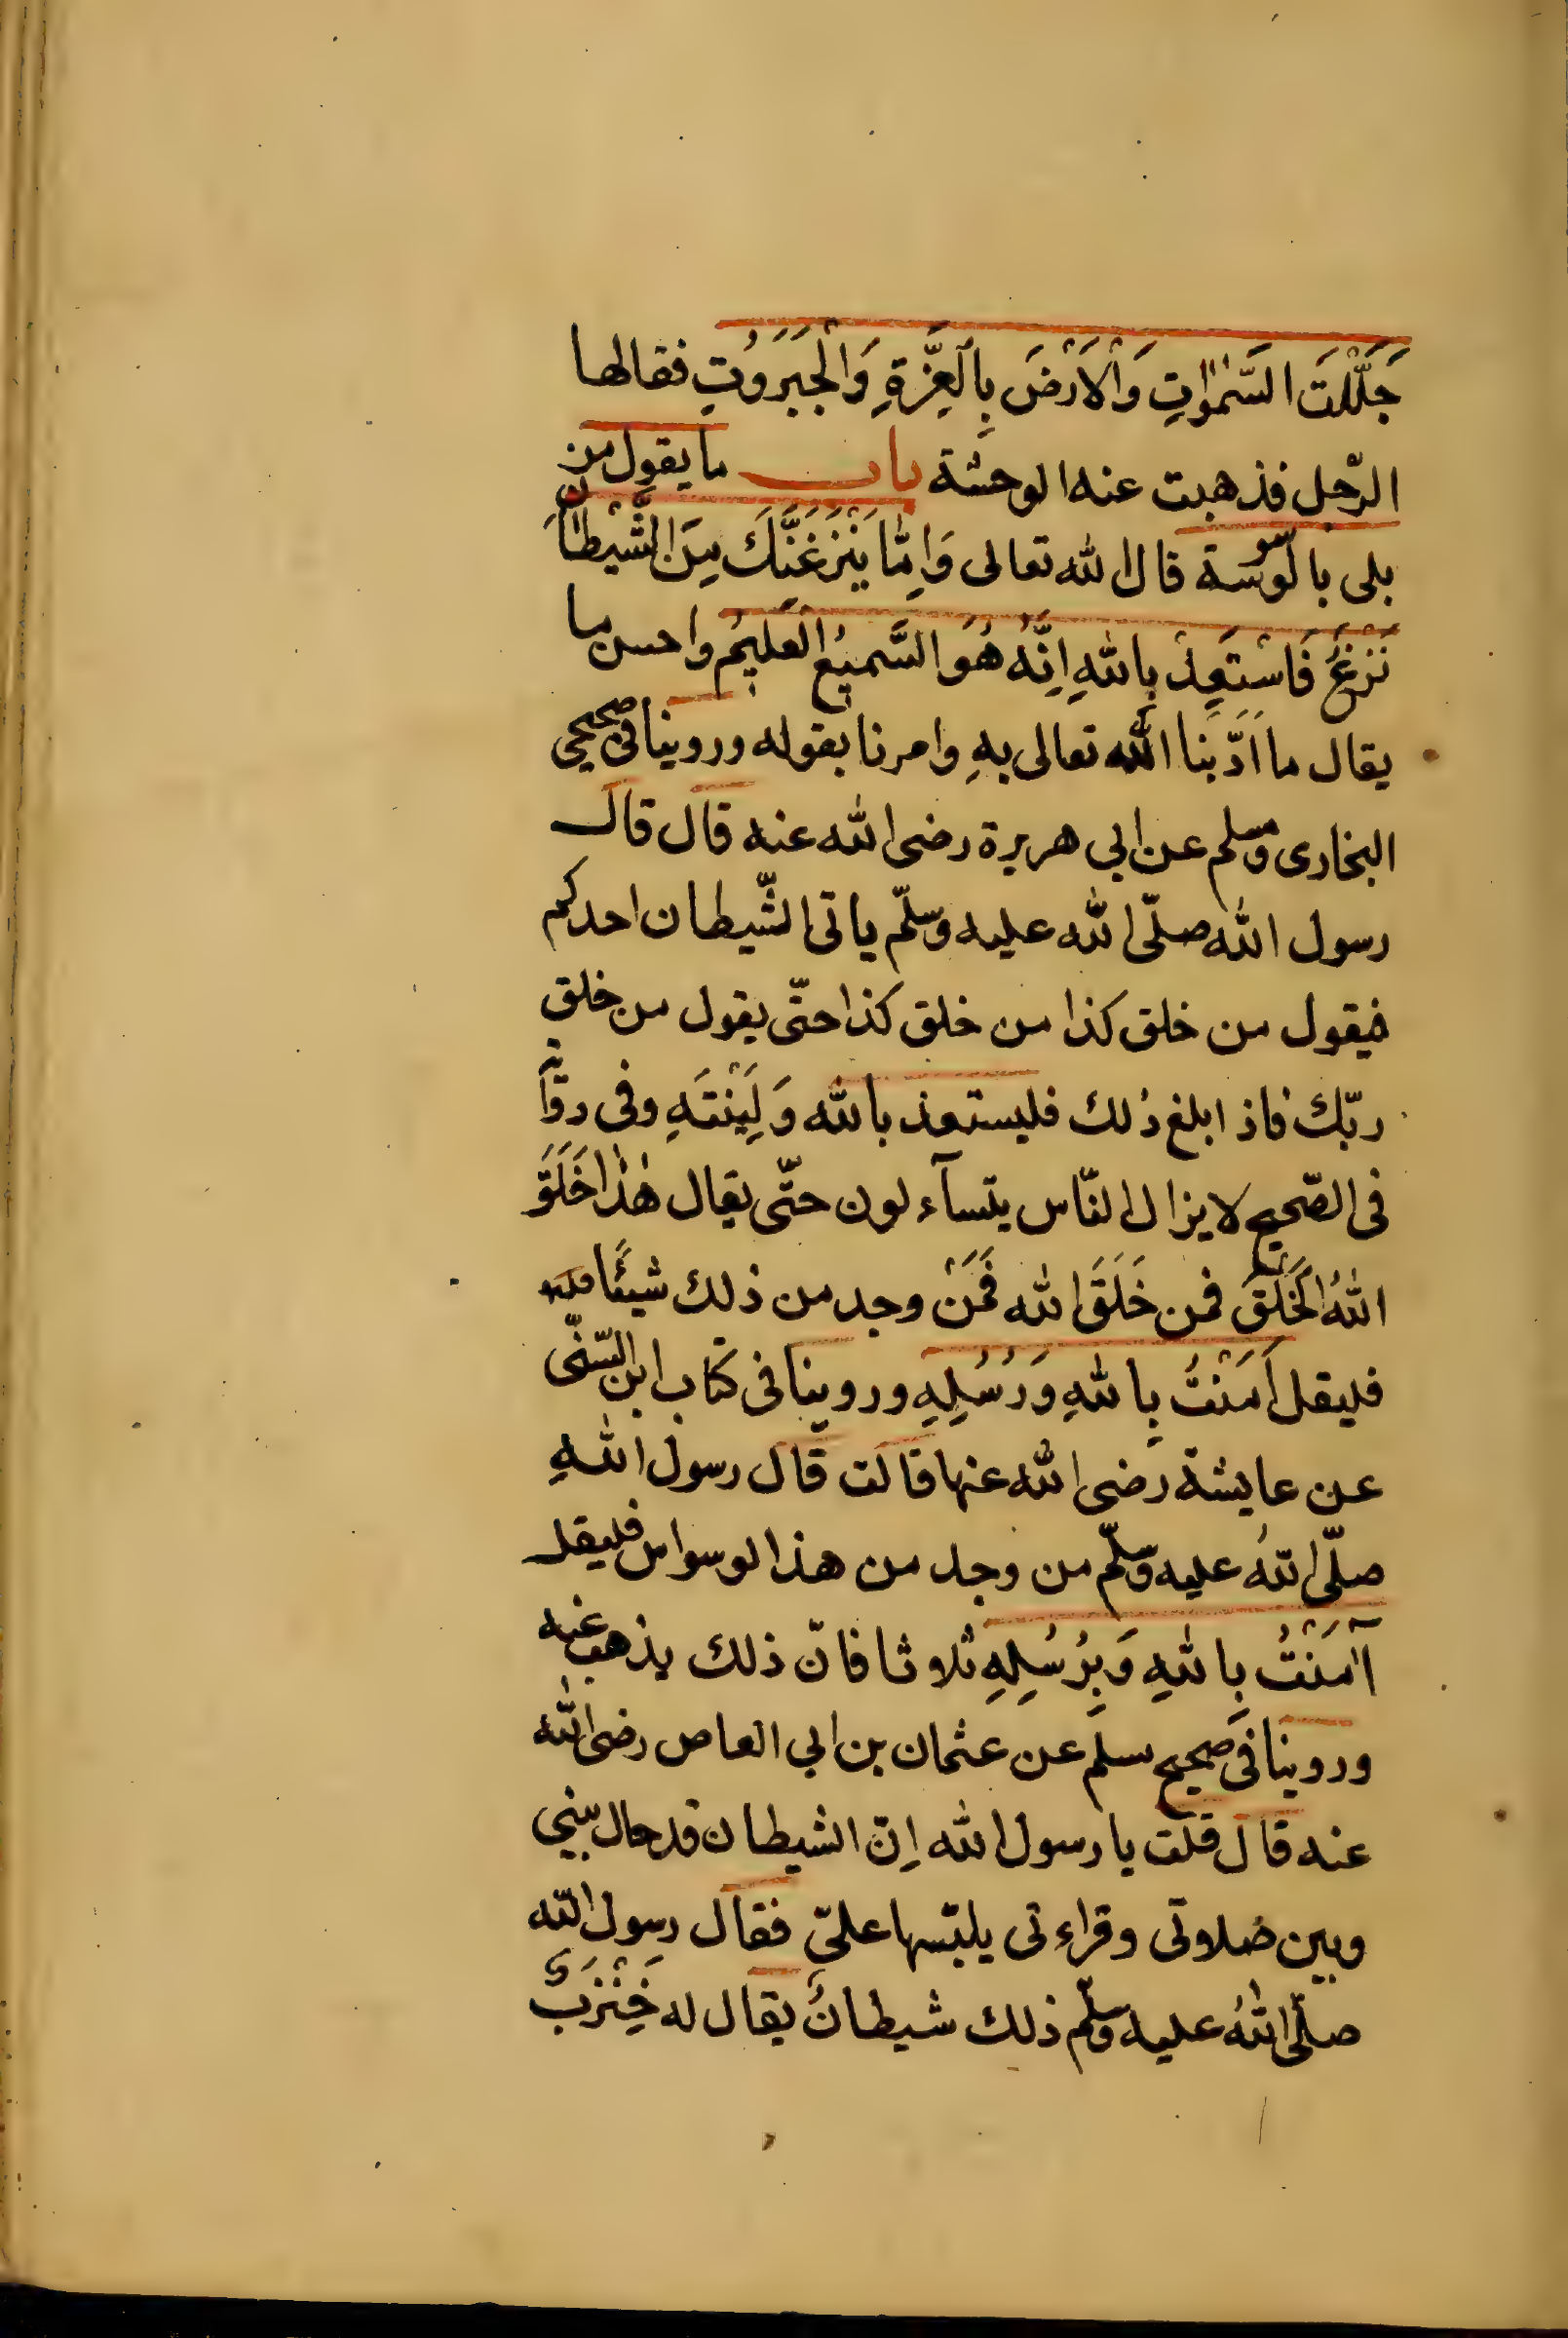 جَلَّلْتَ السَّمٰوٰاتِ وَالْاَرْضَ بِالْعِزَّةِ وَالْجَبَرَوُتِ فقالها
الرّجل فذهبت عنه الوحشة باب ما يقول من
بلى بالوسوسة قال الله تعالى وَاِمَّا يَنْزَغَنَّكَ مِنَ الشَّيْطَانِ
نَزْغٌ فَاسْتَعِذْ بِاللهِ اِنَّهُ هُوَ السَّمِيعُ الْعَلِيمُ واحسن ما
يقال ما اَدَّبَنا الله تعالى بهِ وامرنا بقوله وروينا فى صحيحي
البخارى ومسلم عن ابي هريرة رضى الله عنه قال قال
رسول الله صلّى الله عليه وسلّم ياتى الشّيطان احدكم
فيقول من خلق كذا من خلق كذا حتّى يقول من خلق
ربّك فاذا بلغ ذلك فليستعذ بالله وَلِيَنْتَهِ وفى رواية
فى الصّحيح لا يزال النّاس يتسآءلون حتّى يقال هٰذا خَلَقَ
اللهُ الْخَلْقَ فمن خَلَقَ الله فَمَنْ وجد من ذلك شيئًا
فليقل اَمَنْتُ بِاللهِ وَرُسُلِهِ وروينا فى كتاب ابن السّنّى
عن عايشة رضى الله عنها قالت قال رسول اللهِ
صلّى اللهُ عليه وسلّم من وجد من هذا الوسواس فليقل
آاٰمَنْتُ بِاللهِ وَبِرُسُلِهِ ثلاوثا فانّ ذلك يذهب عنه
وروينا فى صحيح مسلم عن عثمان بن ابي العاص رضى الله
عنه قال قلت يا رسول الله اِنّ الشيطان قد حال بيني
وبين صلاوتى وقراءتى يلبّسها علىّ فقال رسول الله
صلّى اللهُ عليه وسلّم ذلك شيطانٌ يقال له خِنْزَبٌ